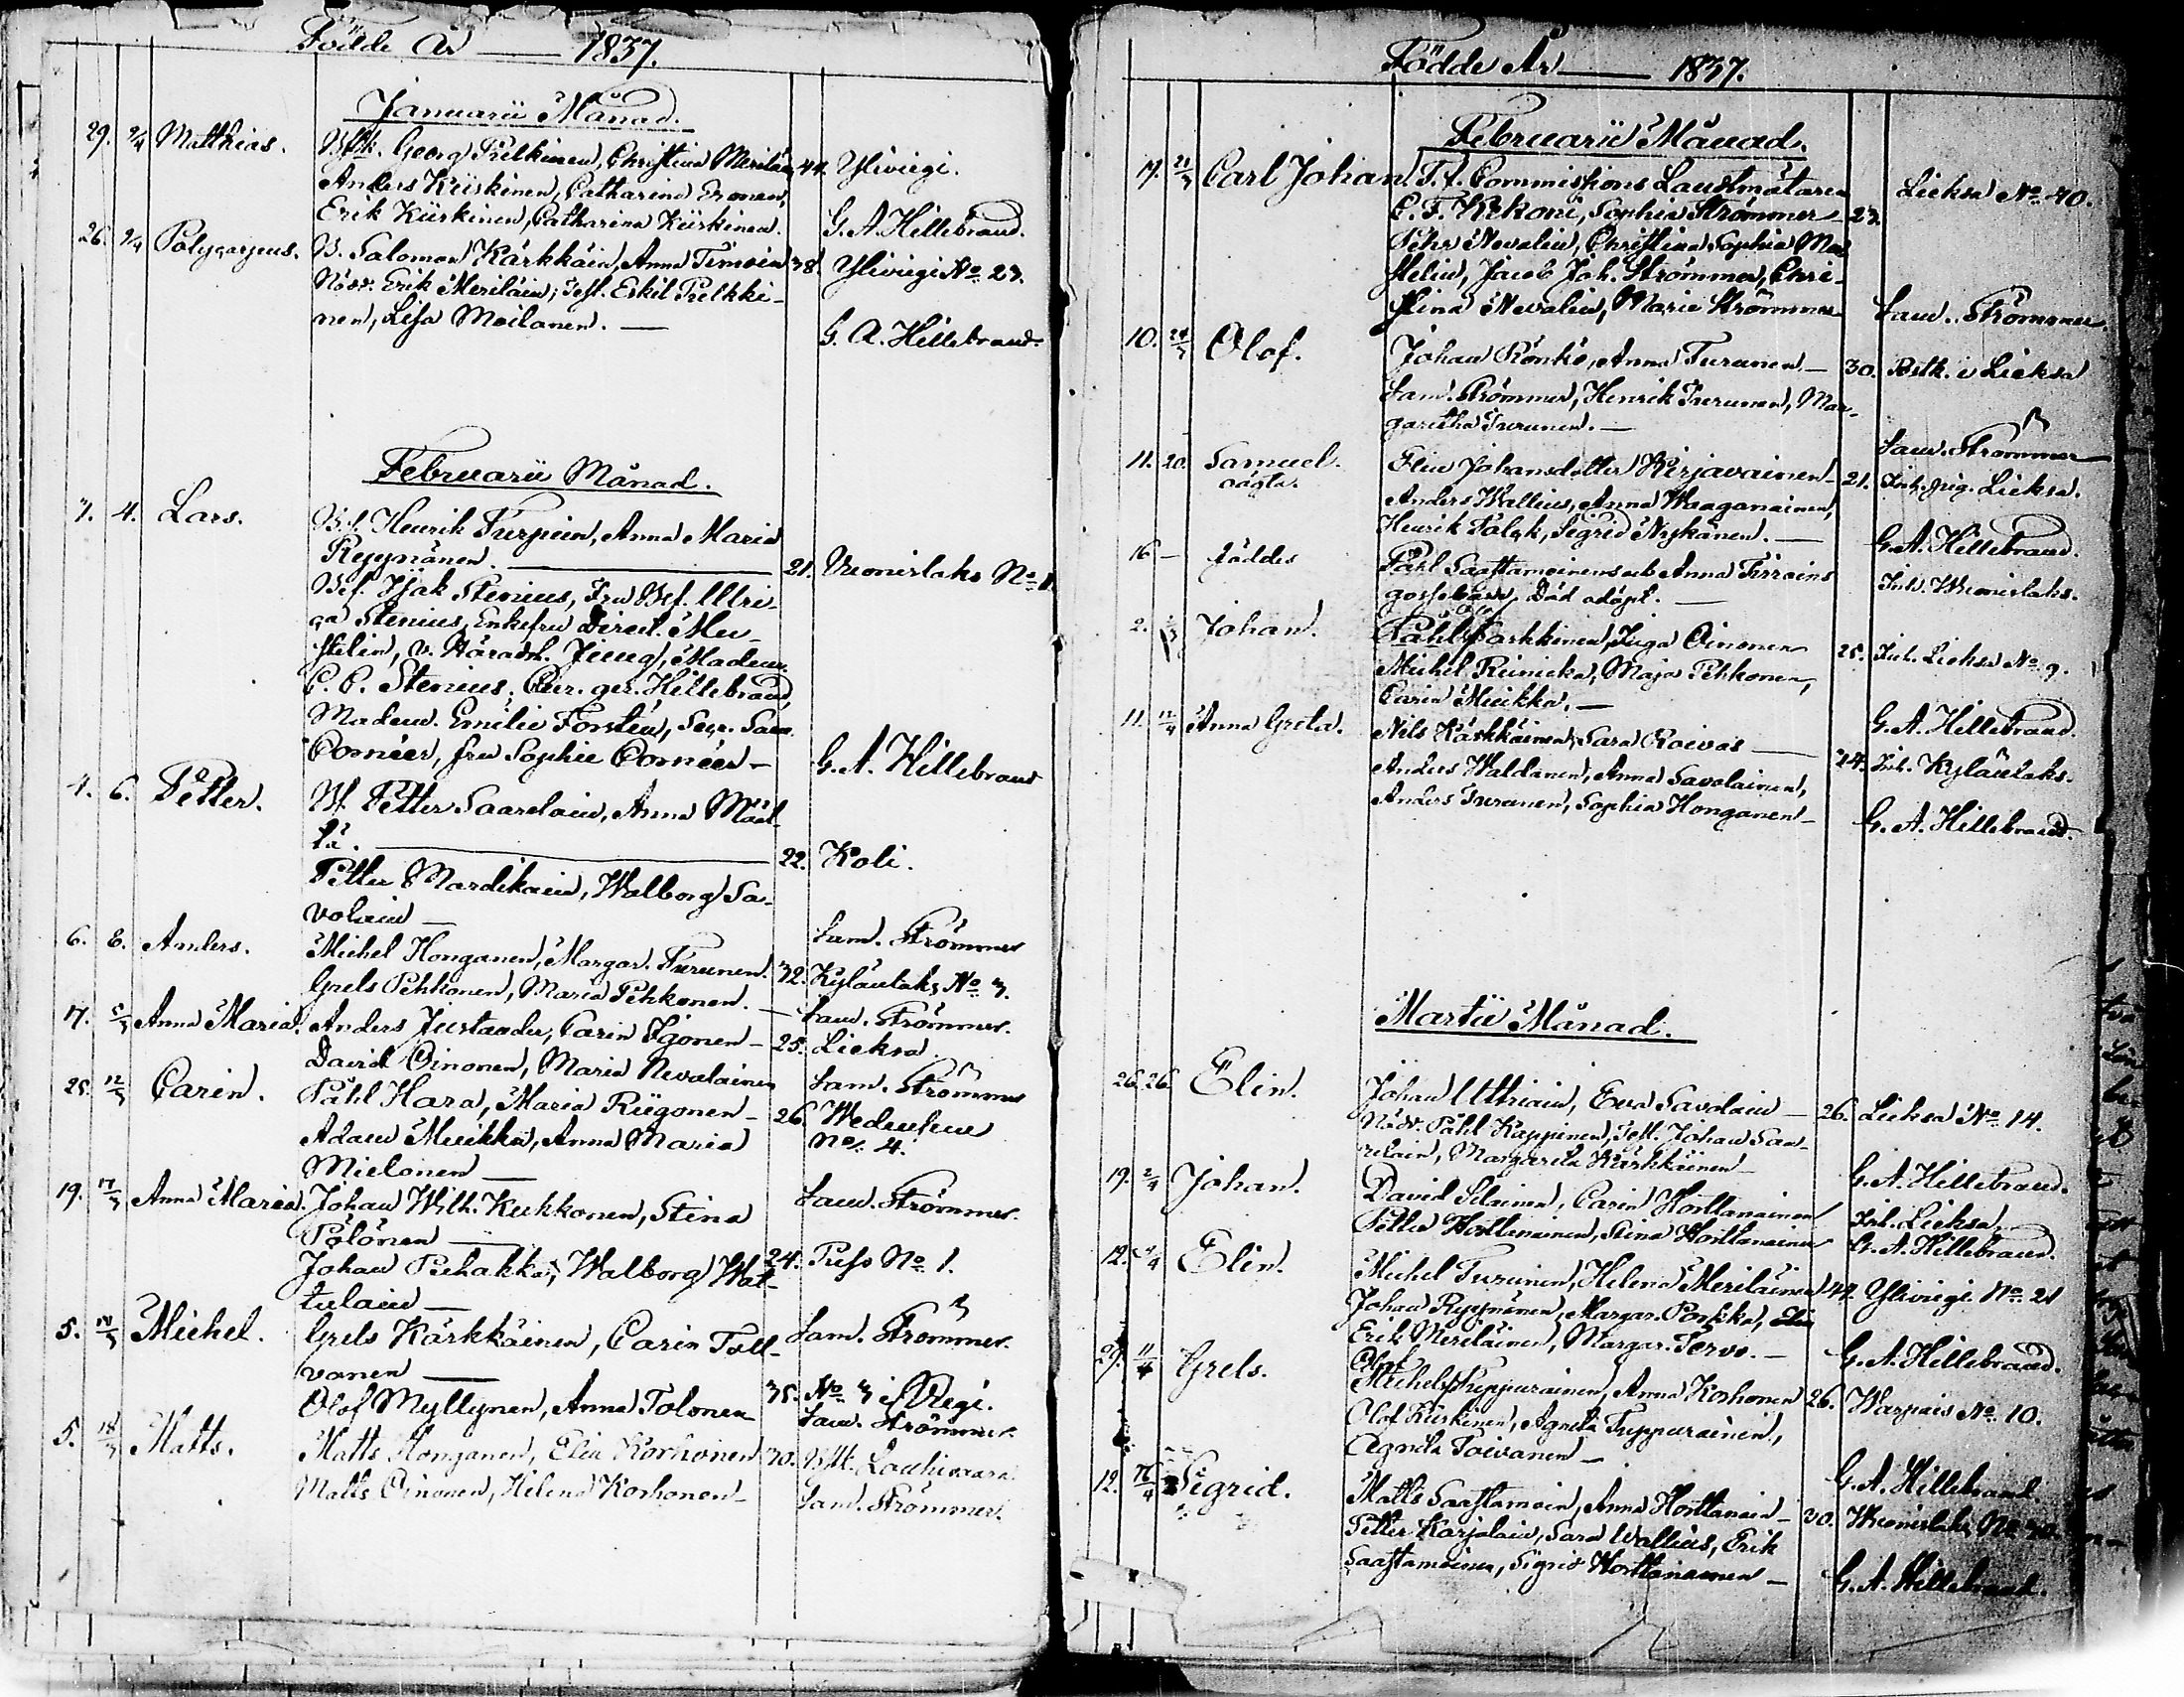 Födde År — 1837.
Januarii Månad.
29. 2/4 Matthias. Georg Pielkinen, Christina Meriläin 44. Yliviegi.
Anders Kiiskinen, Catharina Eronen,
Erik Kiiskinen, Catharina Kiiskinen. G. A. Hillebrand.
26. 2/4 B. Salomon Kärkkäin, Anna Timoin 38. Yliviegi No 23.
Nödd. Erik Meriläin; Test. Eskil Pielkki-
nen, Lisa Moilanen. — G. A. Hillebrand.
Februarii Månad.
3. 4. Lars. Bf. Henrik Turpein, Anna Maria
Ryynänen. — 21. Vuonislaks No 1.
Bef. Isak Stenius, Fru Bef. Ulri-
ca Stenius, Enkefru Direct. Mu-
stelin, v. Häradsh. Jung, Madem.
C. C. Stenius, Cur. ger. Hillebrand,
Madem. Emilie Forstén, Secr. Sam.
Cornéer, fru Sophie Cornéer — G. A. Hillebrand
4. 6. Petter. Bf. Petter Saarelain, Anna Määt-
tä. — 22. Koli.
Petter Mardikain, Walborg Sa-
volain — Sam. Strömmer
6. 8. Anders. Michel Honganen, Margar. Turunen. 32. Kylänlaks No 3.
Grels Pehkonen, Maria Pehkonen. — Sam. Strömmer.
17. 5/3 Anna Maria. Anders Justander, Carin Igonen — 25. Lieksa.
David Oinonen, Maria Nevalainen Sam. Strömmer
25. 12/3 Carin. Påhl Hara, Maria Riigonen — 26. Wedensuu
Adam Muikka, Anna Maria No. 4.
Mielonen —
19. 17/3 Anna Maria. Johan Wilh. Kuhkonen, Stina Sam. Strömmer.
Pölönen —
Johan Puhakka, Walborg Wat- 24. Puso No 1.
tulain —
5. Michel. Grels Kärkkäinen, Carin Toll- Sam. Strömmer.
vanen —
Olof Myllynen, Anna Tolonen 35. No 3 i Viegi.
Sam. Strömmer.
5. 18/3 Matts. Matts Honganen, Elin Korhoinen 30. Louhivaara.
Matts Oinonen, Helena Korhonen — Sam. Strömmer.
Födde År — 1837.
Februarii Månad.
17. 21/3 Carl Johan T. f. Commissions Landtmätaren Lieksa No 40.
C. F. Kekoni, Sophia Strömmer 27.
Pehr Nevalin, Christina Sophia Mu-
stelin, Jacob Joh. Strömmer, Chri-
stina Nevalin, Marie Strömmer Sam. Strömmer.
10. Olof. Johan Rönkö, Anna Turunen — 30. Bstk. i Lieksa
Sam. Strömmer, Henrik Turunen, Mar-
garetha Turunen. — Sam. Strömmer
11. 20. Samuel. Elin Johansdotter Kirjavainen 21. Lieksa.
oägta. Anders Wallius, Anna Waaganainen,
Henrik Palck, Sigrid Nykänen. — G. A. Hillebrand.
16 — föddes Påhl Saastamoinens och Anna Tirroins Inh. Wuonislaks.
gossebarn Död odöpt. —
2. Johan. Påhl Parkkinen, Inga Oinonen 25. Inh. Lieksa No 9.
Michel Reinicka, Maja Pehkonen,
Carin Muikka. — G. A. Hillebrand.
11. 12/4 Anna Greta. Nils Kärkkäinen, Sara Roivas — 24. Inh. Kylänlaks.
Anders Waldanen, Anna Savolainen,
Anders Turunen, Sophia Honganen — G. A. Hillebrand.
Martii Månad.
26. 26. Elin. Johan Uttriain, Eva Savolain — 26. Lieksa No 14.
Nödd. Påhl Kappinen, Test. Johan Saa-
relain, Margareta Kärkkäinen — G. A. Hillebrand.
19. 2/4 Johan. David Silainen, Carin Horttanainen Inh. Lieksa.
Petter Horttanainen, Stina Horttanainen G. A. Hillebrand.
12. Elin. Michel Turunen, Helena Meriläinen 44. Yliviegi No. 21
Johan Ryynänen, Margar. Porkka,
Erik Meriläinen, Margar. Tervo. — G. A. Hillebrand.
29. 11/4 Grels. Olof
Michel Tuppurainen, Anna Korhonen 26. Warpais No. 10.
Olof Kiiskinen, Agneta Tuppurainen,
Agneta Toivanen — G. A. Hillebrand.
12. 16/4 Sigrid. Matts Saastamoin, Anna Horttanain — 30. Wuonislaks No
Petter Karjalain, Sara Wallius, Erik
Saastamoinen, Sigrid Horttanainen — G. A. Hillebrand.